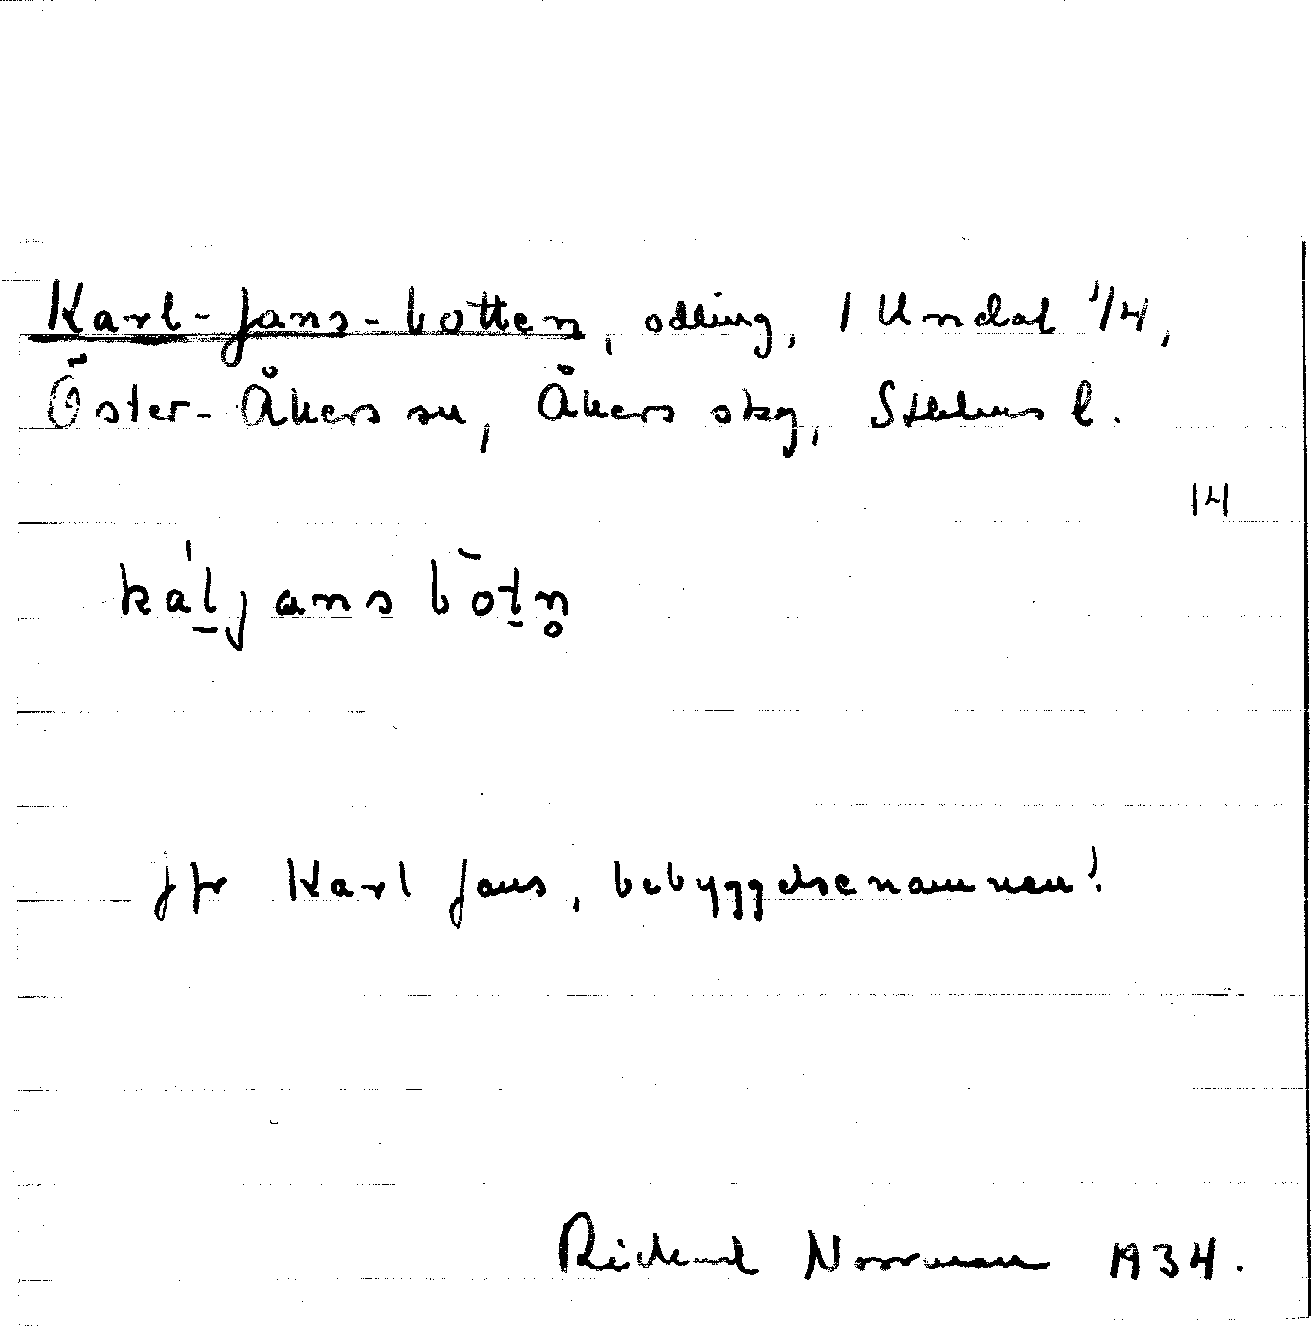 Karl-Jans-botten, odling, 1 Undal 1/4,
Öster-Åkers sn, Åkers skg, Sthlms l.
14
ka̍l̠jansbōt̠n̥
jfr Karl Jans, bebyggelsenamnen!
Rickard Norrman 1934.